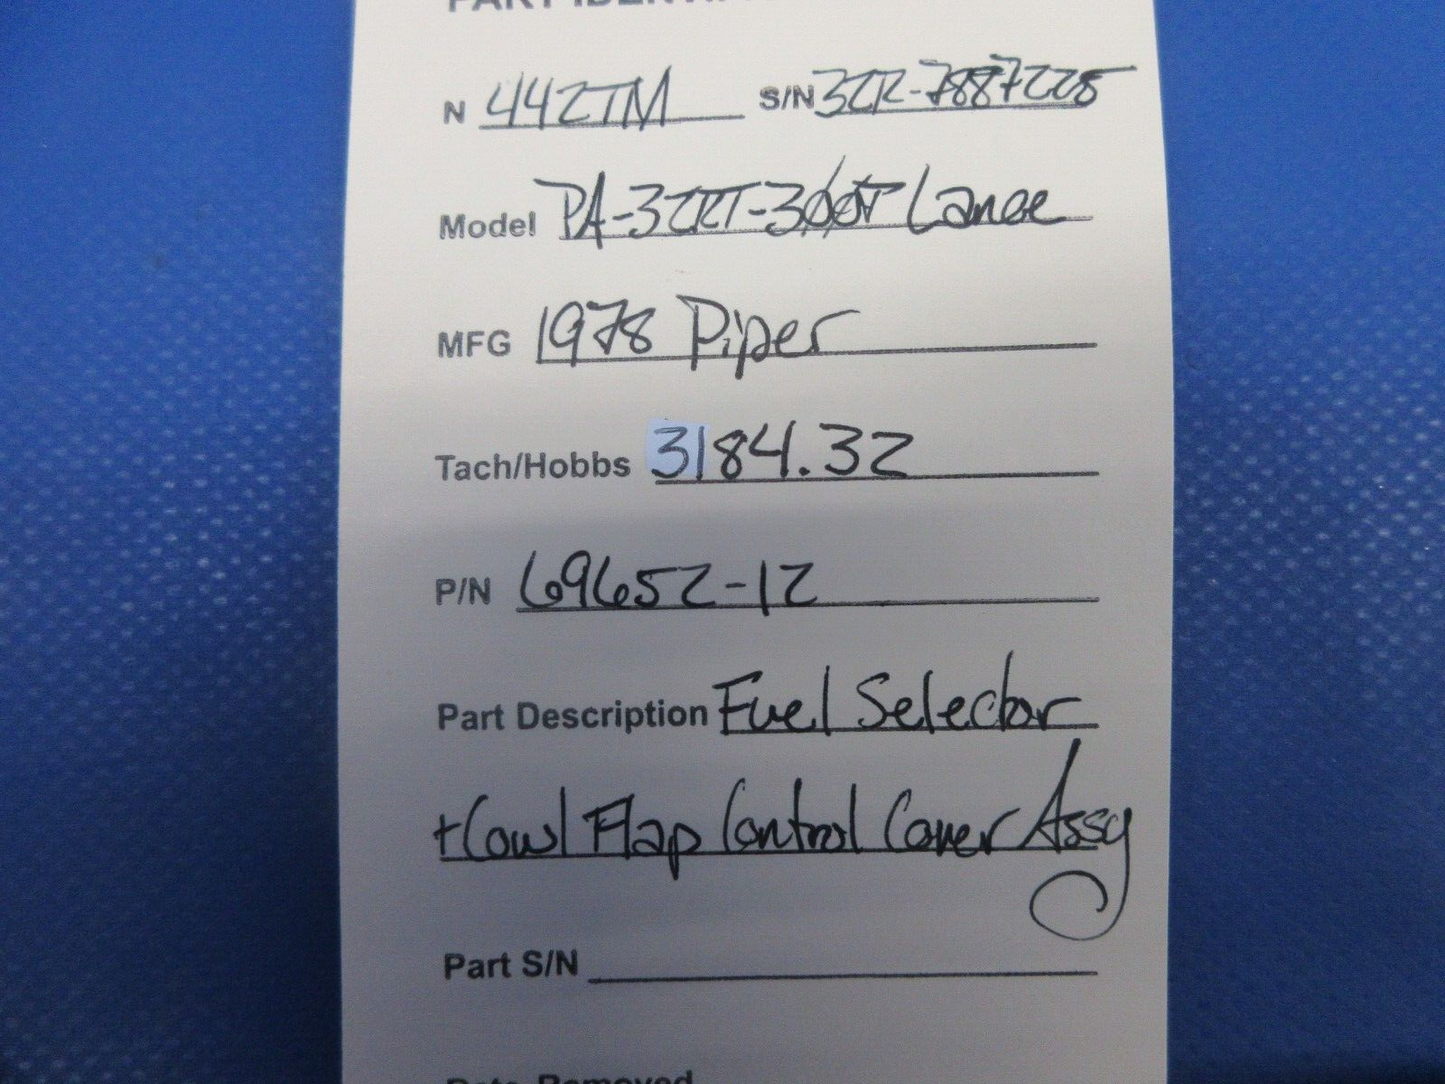 N 442TM S/N 32R-7887225
Model PA-32RT-300T Lance
MFG 1978 Piper
Tach/Hobbs 3184.32
P/N 69652-12
Part Description Fuel Selector
+ Cowl Flap Control Cover Assy
Part S/N
Date Removed